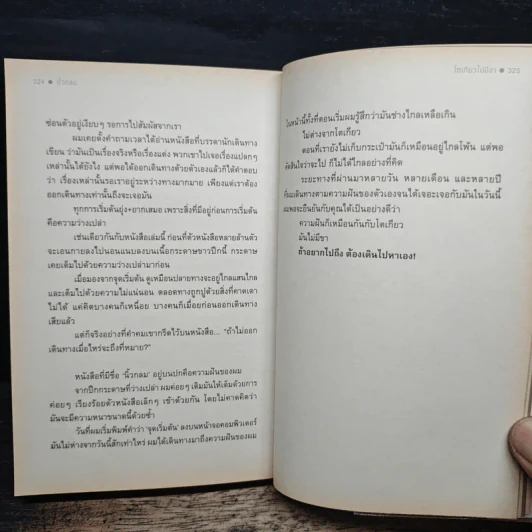 324 ● นิ้วกลม
ซ่อนตัวอยู่เงียบๆ รอการไปสัมผัสจากเรา
ผมเคยตั้งคำถามเวลาได้อ่านหนังสือที่บรรดานักเดินทาง
เขียน ว่ามันเป็นเรื่องจริงหรือเรื่องแต่ง พวกเขาไปเจอเรื่องแปลกๆ
เหล่านั้นได้ยังไง แต่พอได้ออกเดินทางด้วยตัวเองแล้วก็ได้คำตอบ
ว่า เรื่องเหล่านั้นรอเราอยู่ระหว่างทางมากมาย เพียงแต่เราต้อง
ออกเดินทางเท่านั้นถึงจะเจอมัน
ทุกการเริ่มต้นยุ่ง+ยากเสมอ เพราะสิ่งที่มีอยู่ก่อนการเริ่มต้น
คือความว่างเปล่า
เช่นเดียวกันกับหนังสือเล่มนี้ ก่อนที่ตัวหนังสือหลายล้านตัว
จะเอนกายลงไปนอนแนบลงบนเนื้อกระดาษขาวปึกนี้ กระดาษ
เคยเต็มไปด้วยความว่างเปล่ามาก่อน
เมื่อมองจากจุดเริ่มต้น ดูเหมือนปลายทางจะอยู่ไกลแสนไกล
และเต็มไปด้วยความไม่แน่นอน ตลอดทางถูกปูด้วยสิ่งที่คาดเดา
ไม่ได้ แค่คิดบางคนก็เหนื่อย บางคนก็เมื่อยก่อนออกเดินทาง
เสียแล้ว
แต่ก็จริงอย่างที่คำคมเขากรีดไว้บนหนังสือ... "ถ้าไม่ออก
เดินทางเมื่อไหร่จะถึงที่หมาย?"
หนังสือที่มีชื่อ 'นิ้วกลม' อยู่บนปกคือความฝันของผม
จากปึกกระดาษที่ว่างเปล่า ผมค่อยๆ เติมมันให้เต็มด้วยการ
ค่อยๆ เรียงร้อยตัวหนังสือเล็กๆ เข้าด้วยกัน โดยไม่คาดคิดว่า
มันจะมีความหนาขนาดนี้ด้วยซ้ำ
วันที่ผมเริ่มพิมพ์คำว่า 'จุดเริ่มต้น' ลงบนหน้าจอคอมพิวเตอร์
มันไม่ห่างจากวันนี้สักเท่าไหร่ ผมได้เดินทางมาถึงความฝันของผม
โตเกียวไม่มีขา ● 325
ในหน้านี้ทั้งที่ตอนเริ่มผมรู้สึกว่ามันช่างไกลเหลือเกิน
ไม่ต่างจากโตเกียว
ตอนที่เรายังไม่เก็บกระเป๋ามันก็เหมือนอยู่ไกลโพ้น แต่พอ
ตัดสินใจว่าจะไป ก็ไม่ได้ไกลอย่างที่คิด
ระยะทางที่ผ่านมาหลายวัน หลายเดือน และหลายปี
ที่ผมเดินทางตามความฝันของตัวเองจนได้เจอะเจอกับมันในวันนี้
คงพอจะยืนยันกับคุณได้เป็นอย่างดีว่า
ความฝันก็เหมือนกันกับโตเกียว
มันไม่มีขา
ถ้าอยากไปถึง ต้องเดินไปหาเอง!